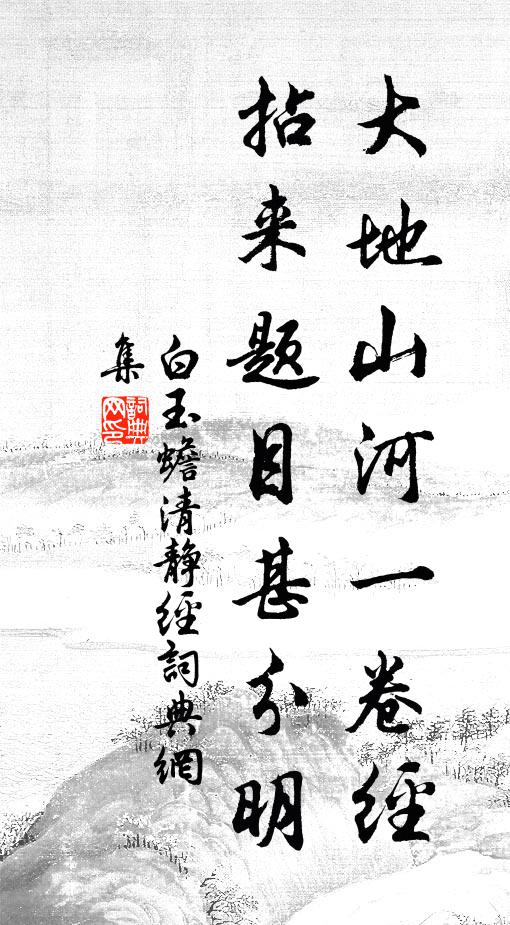 大地山河一卷經
拈来题目甚分明
白玉蟾清静經詞典網
集
詞典
网印